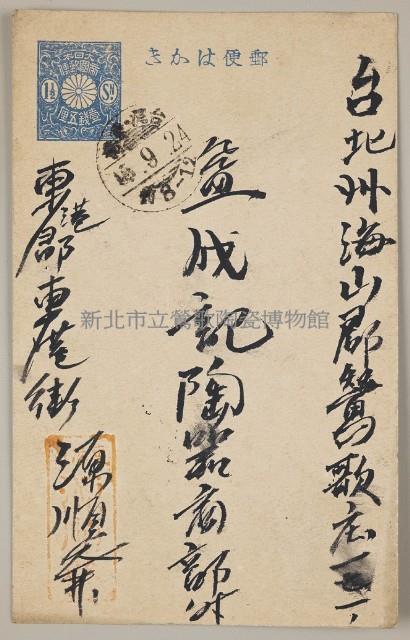 郵便はかき
大日本帝國郵便
1½ SN
壹錢五厘
台北州海山郡鶯歌庄
益成記陶器商部
東港郡東港街
源順
9.24
8-12
新北市立鶯歌陶瓷博物館